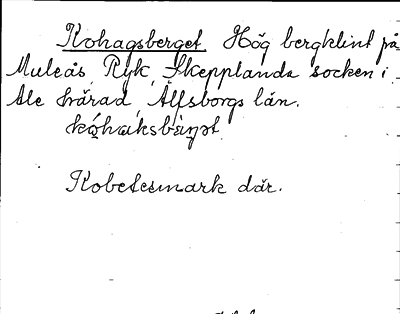 Kohagsberget. Hög bergklint på
Muleås, Ryk, Skepplanda socken i
Ale härad, Älfsborgs län.
kóhaksbæ̀rjət

Kobetesmark där.